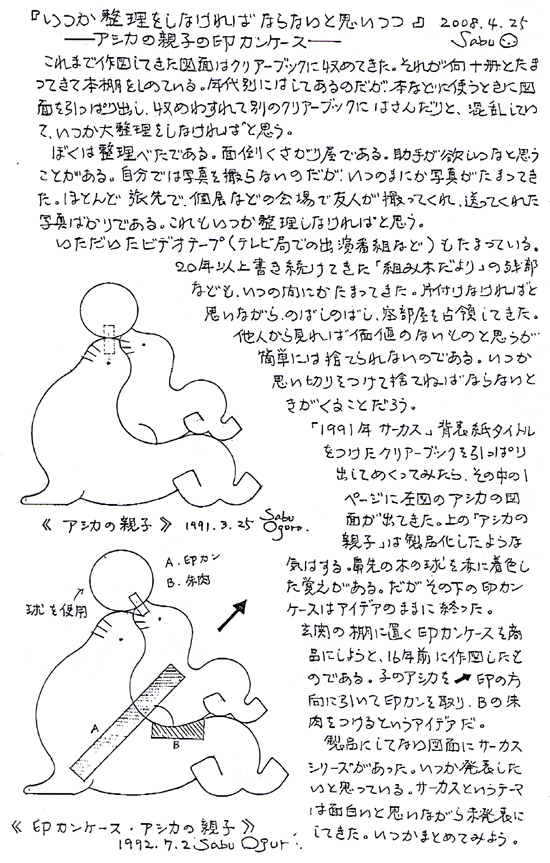 『いつか整理をしなければならないと思いつつ』 2008.4.25
――アシカの親子の印カンケース―― Sabu
これまで作図してきた図面はクリアーブックに収めてきた。それが何十冊とたま
ってきて本棚をしめている。年代別にはしてあるのだが、本などに使うときに図
面を引っぱり出し、収めわすれて別のクリアーブックにはさんだりと、混乱してい
て、いつか大整理をしなければと思う。
ぼくは整理べたである。面倒くさがり屋である。助手が欲しいなと思う
ことがある。自分では写真を撮らないのだが、いつのまにか写真がたまってき
た。ほとんど旅先で、個展などの会場で友人が撮ってくれ、送ってくれた
写真ばかりである。これもいつか整理しなければと思う。
いただいたビデオテープ(テレビ局での出演番組など)もたまっている。
20年以上書き続けてきた「組み木だより」の残部
なども、いつの間にかたまってきた。片付けなければと
思いながら、のばしのばし、底部屋を占領してきた。
他人から見れば価値のないものと思うが
簡単には捨てられないのである。いつか
思い切りをつけて捨てねばならないと
きがくることだろう。
「1991年 サーカス」背表紙タイトル
をつけたクリアーブックを引っぱり
出してめくってみたら、その中の1
ページに左図のアシカの図
面が出てきた。上の「アシカの
親子」は製品化したような
気はする。鼻先の木の球を赤に着色し
た覚えがある。だがその下の印カン
ケースはアイデアのままに終った。
玄関の棚に置く印カンケースを商
品にしようと、16年前に作図したも
のである。子のアシカを➚印の方
向に引いて印カンを取り、Bの朱
肉をつけるというアイデアだ。
製品にしてない図面にサーカス
シリーズがあった。いつか発表した
いと思っている。サーカスというテーマ
は面白いと思いながら未発表に
してきた。いつかまとめてみよう。
《 アシカの親子 》 1991.3.25 Sabu Oguro.
A. 印カン
B. 朱肉
球を使用
A
B
《 印カンケース・アシカの親子 》
1992.7.2 Sabu Oguri.